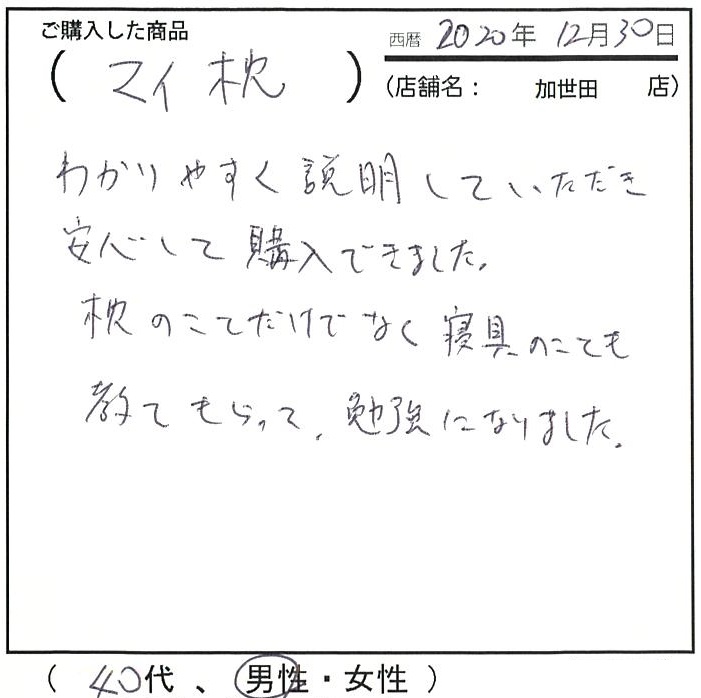 ご購入した商品
西暦 2020年 12月30日
( マイ枕 )
(店舗名: 加世田 店)
わかりやすく説明していただき
安心して購入できました。
枕のことだけでなく寝具のことも
教てもらって、勉強になりました。
( 40代 、 男性・女性 )